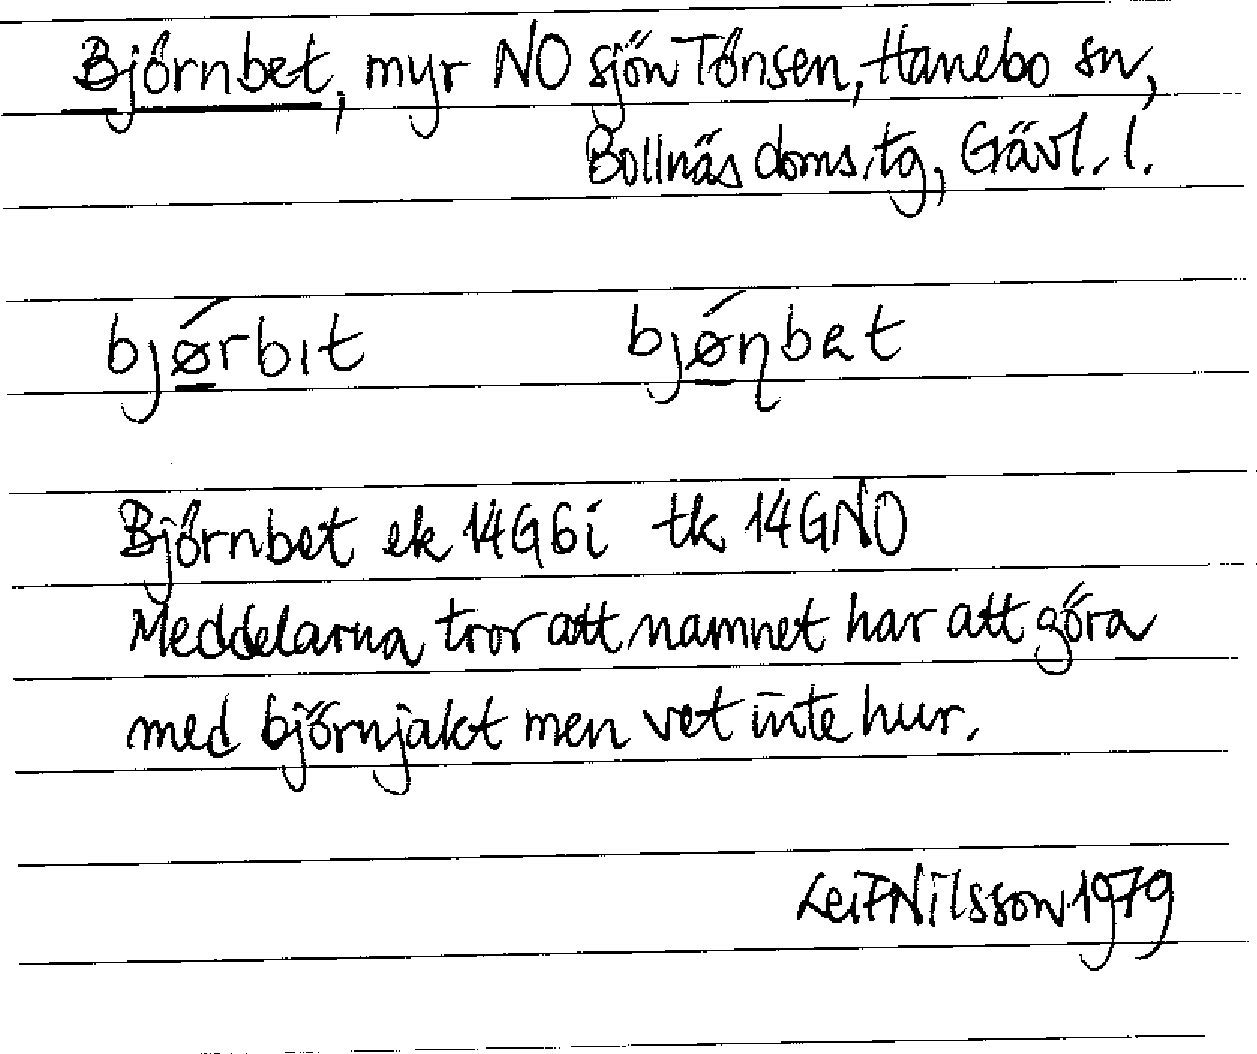 Björnbet, myr NO sjön Tönsen, Hanebo sn,
Bollnäs doms.tg, Gävl. l.
bjǿrbıt bjǿṇbet
Björnbet ek 14G6i tk 14GNO
Meddelarna tror att namnet har att göra
med björnjakt men vet inte hur.
Leif Nilsson 1979